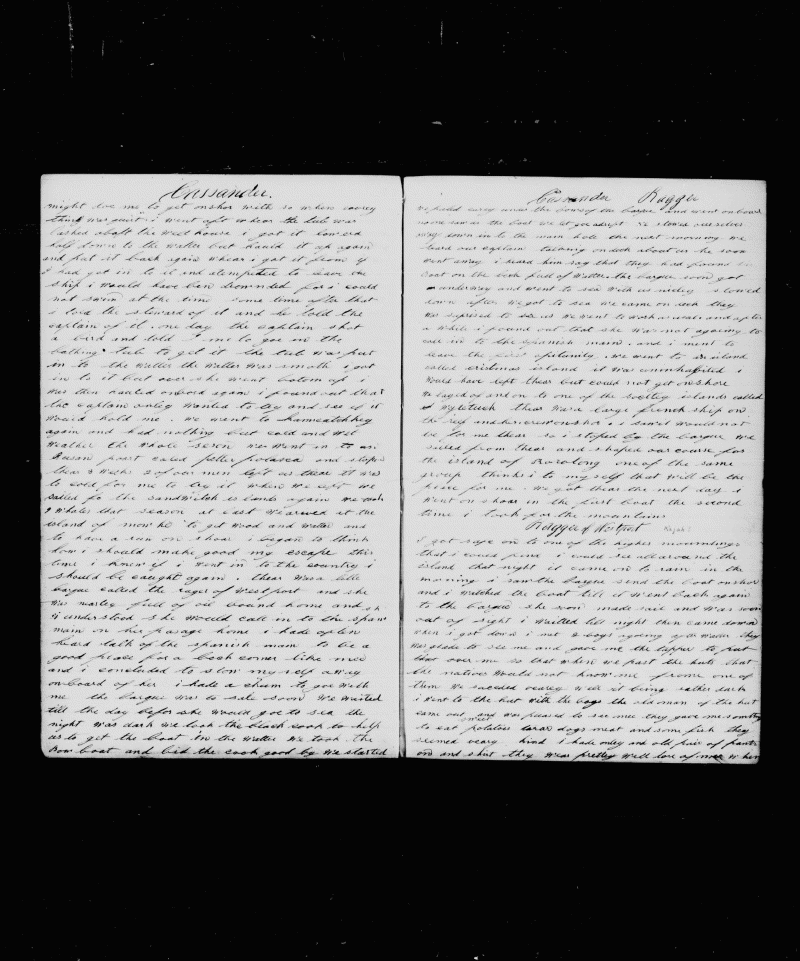 Cassander.
might doe me to get onshor with so when everey
thing was quiet i went aft whear the tub was
lashed abaft the weel house i got it lowerd
half down to the watter but hauld it up again
and put it back again whear i got it from if
I had got in to it and atempted to leave the
ship i would have ben drownded for i could
not swim at the time some time after that
i told the steward of it and he told the
captain of it. one day the captain shot
a bird and told me to goe in the
bathing tub to get it the tub was put
in to the watter the watter was smoth i got
in to it but over she went botom up i
was then hauled onbord again i found out that
the captain onley wanted to try and see if it
would hold me. we went to Kamcatchkey
again and had nothing but cold and wet
weather the whole seson we went in to an
Rusan port caled petter polasca and stoped
thear 3 weeks 2 of our men left us thear it was
to cold for me to try it when we left we
sailed fo the sandwitch islands again we took
2 whales that season at last we arived at the
island of mowhe to get wood and watter and
to have a run on shoar i began to think
how i should make good my escape this
time i knew if i went in to the country i
should be caught again. thear was a little
barque called the rager of westport and she
was nearley full of oil bound home and
i understood she would call in to the span
main on her pasage home i hade often
heard talk of the spanish man to be a
good place for a beach comer like me
and i concluded to stow my self away
onboard of her i hade a chum to goe with
me the barque was to sail soon we waited
till the day befor she would goe to sea the
night was dark we took the black cook to help
us to get the boat in the watter we took the
bow boat and bid the cook good by we started
Cassander Raggee
we puled away under the bows of the barque and went on board
no one saw us the boat we let goe adrift we stowed ourselves
away down in to the main hole the next morning we
heard our captain talking on deck about us he soon
went away i heard him say that they had found the
boat on the beach full of watter the barque soon got
underway and went to sea with us nicley stowed
down after we got to sea we came on deck they
was supprised to see us we went to work as usual and after
a while i found out that she was not agoing to
call in to the spanish main. and i ment to
leave the first opertunity. we went to an island
called cristmas island it was uninhabited i
would have left thear but could not get onshore
we layed of and on to one of the sociltey islands called
Wytetuck thear was a large french ship on
the reef and her crew onshor i saw it would not
be for me thear so i stoped by the barque we
sailed from thear and shaped our course for
the island of Rorotong one of the same
group thinks i to my self that will be the
place for me we got thear the next day i
went on shoar in the first boat the second
time i took for the mountains
Raggee of Westport Rajah?
I got safe on to one of the highes mountings
that i could find i could see all around the
island that night it came on to rain in the
morning i saw the barque send the boat onshor
and i watched the boat till it went back again
to the barque she soon made sail and was soon
out of sight i waited till night then came down
when i got down i met 2 boys agoing after watter they
was glade to see me and gave me the tapper to put
that over me so that when we past the huts that
the natives would not know me frome one of
them we suceded verey well it being rather dark
i went to the hut with the boys the old man of the hut
came out and was pleased to see mee they gave me somthing
to eat sweet potatoes taro dogs meat and some fish they
seemed veary kind i hade onley and old pair of pants
on and shirt they wear pretty well tore of mee when